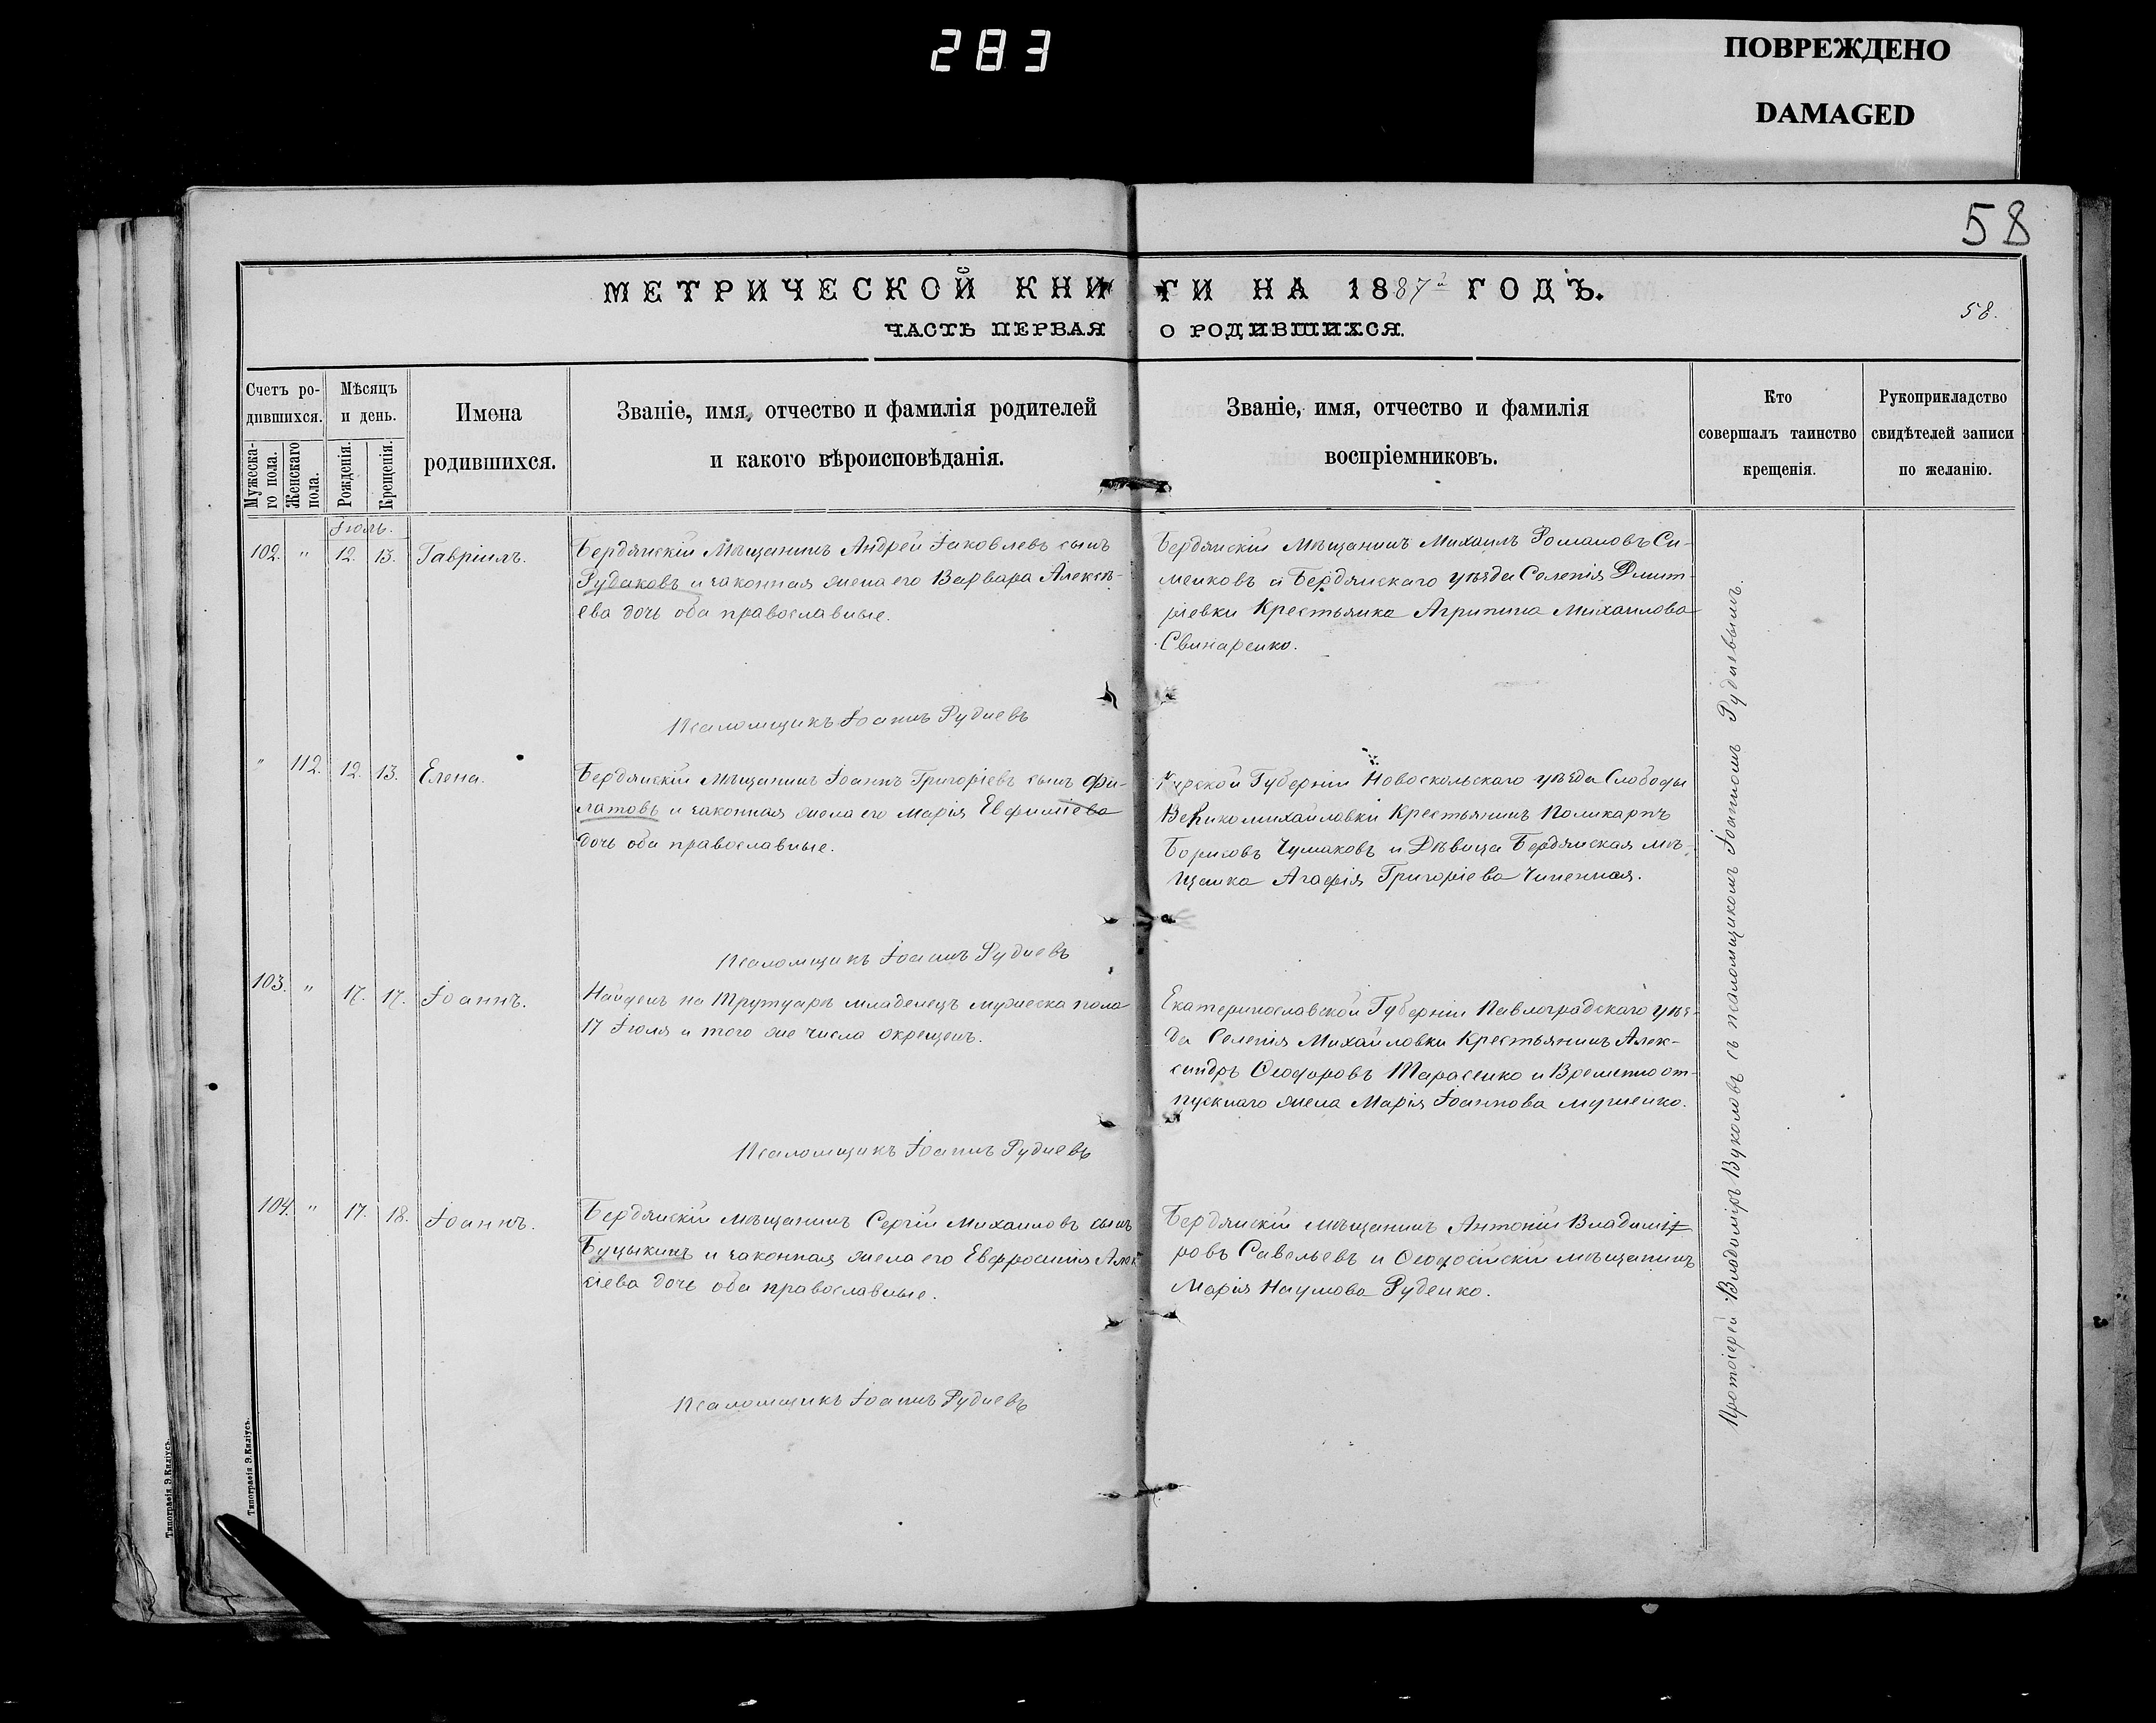 283
ПОВРЕЖДЕНО
DAMAGED
58
МЕТРИЧЕСКОЙ КНИГИ НА 1887й ГОДЪ.
58.
ЧАСТЬ ПЕРВАЯ О РОДИВШИХСЯ.
Счетъ ро-
дившихся.
Мужеска-
го пола.
Женскаго
пола.
Мѣсяцъ
и день.
Рожденія.
Крещенія.
Имена
родившихся.
Званіе, имя, отчество и фамилія родителей
и какого вѣроисповѣданія.
Званіе, имя, отчество и фамилія
воспріемниковъ.
Кто
совершалъ таинство
крещенія.
Рукоприкладство
свидѣтелей записи
по желанію.
Іюль.
102. " 12. 13. Гавріилъ.
Бердянскій Мѣщанинъ Андрей Іаковлевъ сынъ
Рудаковъ и законная жена его Варвара Алексѣ-
ева дочь оба православные.
Бердянскій Мѣщанинъ Михаилъ Романовъ Си-
менковъ и Бердянскаго уѣзда Селенія Дмит-
ріевки Крестьянка Агрипина Михаилова
Свинаренко.
Псаломщикъ Іоаннъ Рудневъ
" 112. 12. 13. Елена.
Бердянскій Мѣщанинъ Іоаннъ Григоріевъ сынъ Фи-
латовъ и законная жена его Марія Евфиміева
дочь оба православные.
Курской Губерніи Новоскольскаго уѣзда Слободы
Великомихайловки Крестьянинъ Поликарпъ
Борисовъ Чумаковъ и Дѣвица Бердянская мѣ-
щанка Агафія Григоріева Чиненная.
Псаломщикъ Іоаннъ Рудневъ
103. " 17. 17. Іоаннъ.
Найденъ на Тротуарѣ младенецъ мужеска пола
17 Іюля и того же числа окрещенъ.
Екатеринославской Губерніи Павлоградскаго уѣз-
да Селенія Михайловки Крестьянинъ Алек-
сандръ Ѳеодоровъ Тарасенко и Временно от-
пускнаго жена Марія Іоаннова
Псаломщикъ Іоаннъ Рудневъ
104. " 17. 18. Іоаннъ.
Бердянскій мѣщанинъ Сергій Михаиловъ сынъ
Буцыкинъ и законная жена его Евфросинія Алек
сіева дочь оба православные.
Бердянскій мѣщанинъ Антоній Владимі
ровъ Савельевъ и Ѳеодосійскій мѣщанинъ
Марія Наумова Руденко.
Псаломщикъ Іоаннъ Рудневъ
Протоіерей Владоміръ Вуколовъ съ псаломщикомъ Іоанномъ Рудневымъ.
Типографія Э. Киліусъ.
Типографія Э. Киліусъ.